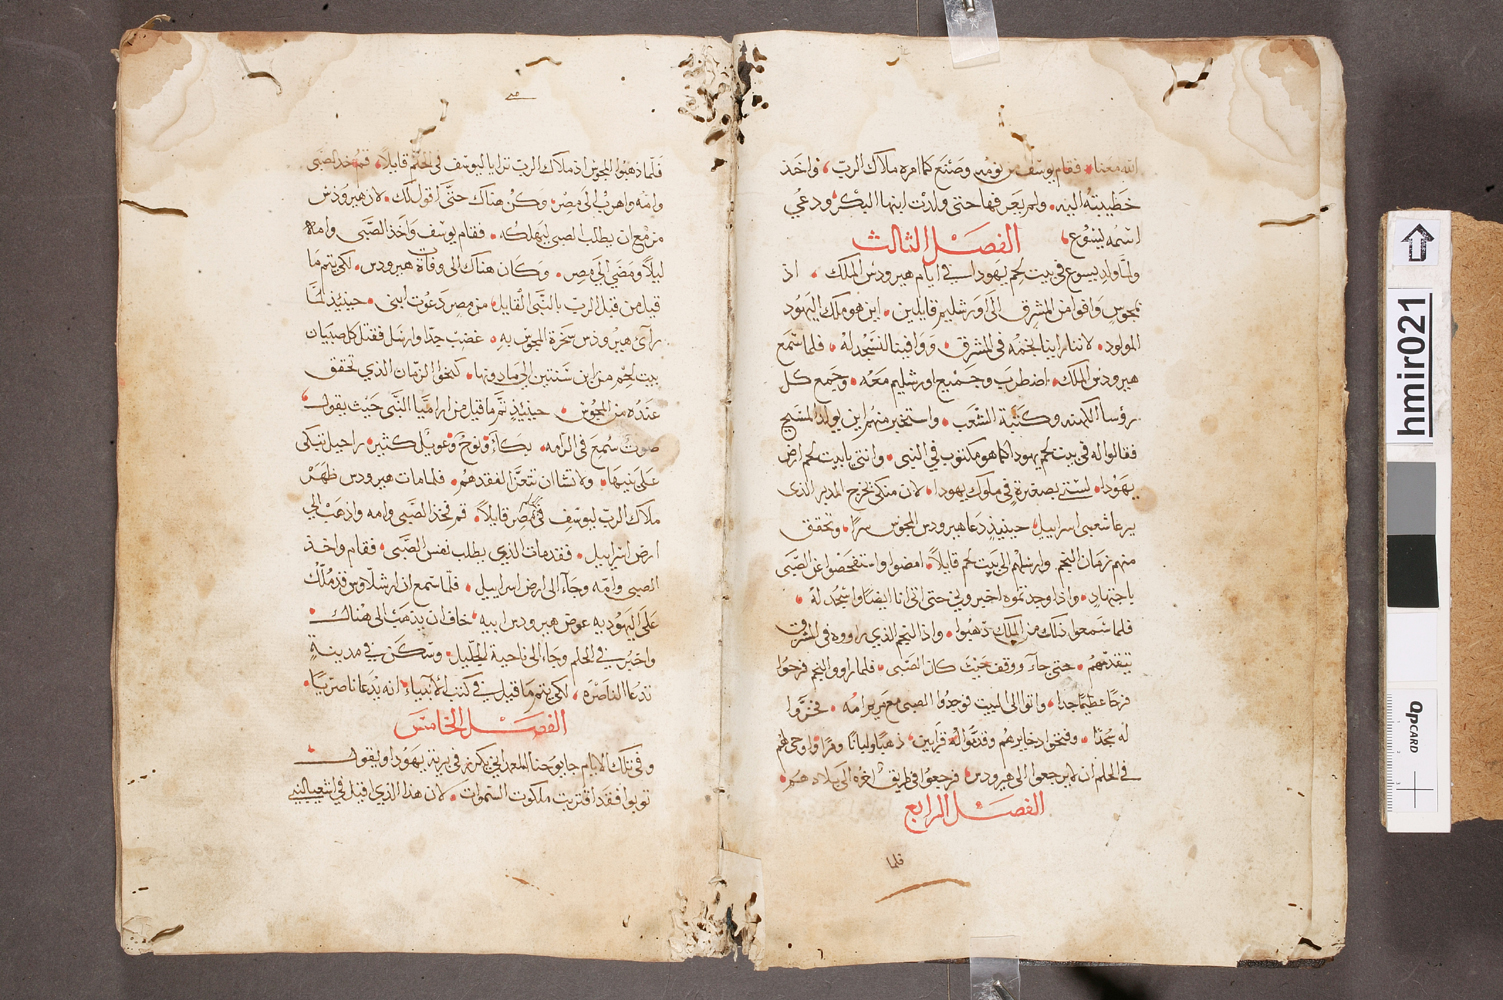 الله معنا فقام يوسف من نومه وصنع كما امره ملاك الرب واخذ
خطيبته اليه ولم يعرفها حتى ولدت ابنها البكر ودعي
اسمه يسوع الفصل الثالث
ولما ولد يسوع في بيت لحم يهودا في ايام هيرودس الملك اذ
مجوس وافوا من المشرق الى اورشليم قايلين اين هو ملك اليهود
المولود لاننا راينا نجمه في المشرق ووافينا لنسجد له فلما سمع
هيرودس الملك اضطرب وجميع اورشليم معه وجمع كل
رؤسا الكهنه وكتبة الشعب واستخبر منهم اين يولد المسيح
فقالوا له في بيت لحم يهودا كما هو مكتوب في النبي وانتي يا بيت لحم ارض
يهودا لستي بصغيرة في ملوك يهودا لان منكي يخرج المدبر الذي
يرعا شعبي اسراييل حينيذ دعا هيرودس المجوس سرا وتحقق
منهم زمان النجم وارسلهم الى بيت لحم قايلا امضوا واستفحصوا عن الصبي
باجتهاد واذا وجدتموه اخبروني حتى اتي انا ايضا واسجد له
فلما سمعوا ذلك من الملك ذهبوا واذا النجم الذي راووه في المشرق
يتقدمهم حتى جاء ووقف حيث كان الصبي فلما راووا النجم فرحوا
فرحا عظيما جدا واتوا الى البيت فوجدوا الصبي مع مريم امه فخروا
له سجدا وفتحوا دخايرهم وقدموا له قرابين ذهبا ولبانا ومرا واوحي لهم
في الحلم ان لا يرجعوا الى هيرودس فرجعوا في طريق اخره الى بلادهم
الفصل الرابع
فلما
فلما ذهبوا المجوس اذ ملاك الرب ترايا ليوسف في الحلم قايلا قم خذ الصبي
وامه واهرب الى مصر وكن هناك حتى اقول لك لان هيرودس
مزمع ان يطلب الصبي ليهلكه فقام يوسف واخذ الصبي وامه
ليلا ومضى الى مصر وكان هناك الى وفاة هيرودس لكي يتم ما
قيل من قبل الرب بالنبي القايل من مصر دعوت ابني حينيذ لما
رآى هيرودس سخرة المجوس به غضب جدا وارسل فقتل كل صبيان
بيت لحم من ابن سنتين الى ما دونها كنحوا الزمان الذي تحقق
عنده من المجوس حينيذ تم ما قيل من ارميا النبي حيث يقول
صوت سمع في الرامه بكاء ونوح وعويل كثير راحيل تبكي
على بنيها ولا تشا ان تتعزا لفقدهم فلما مات هيرودس ظهر
ملاك الرب ليوسف في مصر قايلا قم فخذ الصبي وامه واذهب الى
ارض اسراييل فقد مات الذي يطلب نفس الصبي فقام واخذ
الصبي وامه وجاء الى ارض اسراييل فلما سمع ان ارشلاوس قد ملك
على اليهوديه عوض هيرودس ابيه خاف ان يذهب الى هناك
واخبر في الحلم وجاء الى ناحية الجليل وسكن في مدينة
تدعا الناصره لكي يتم ما قيل في كتب الانبياء انه يدعا ناصريا
الفصل الخامس
وفي تلك الايام جا يوحنا المعمداني يكرز في برية يهودا ويقول
توبوا فقد اقتربت ملكوت السموات لان هذا الذي اقيل في اشعيا النبي
hmir021
Op CARD